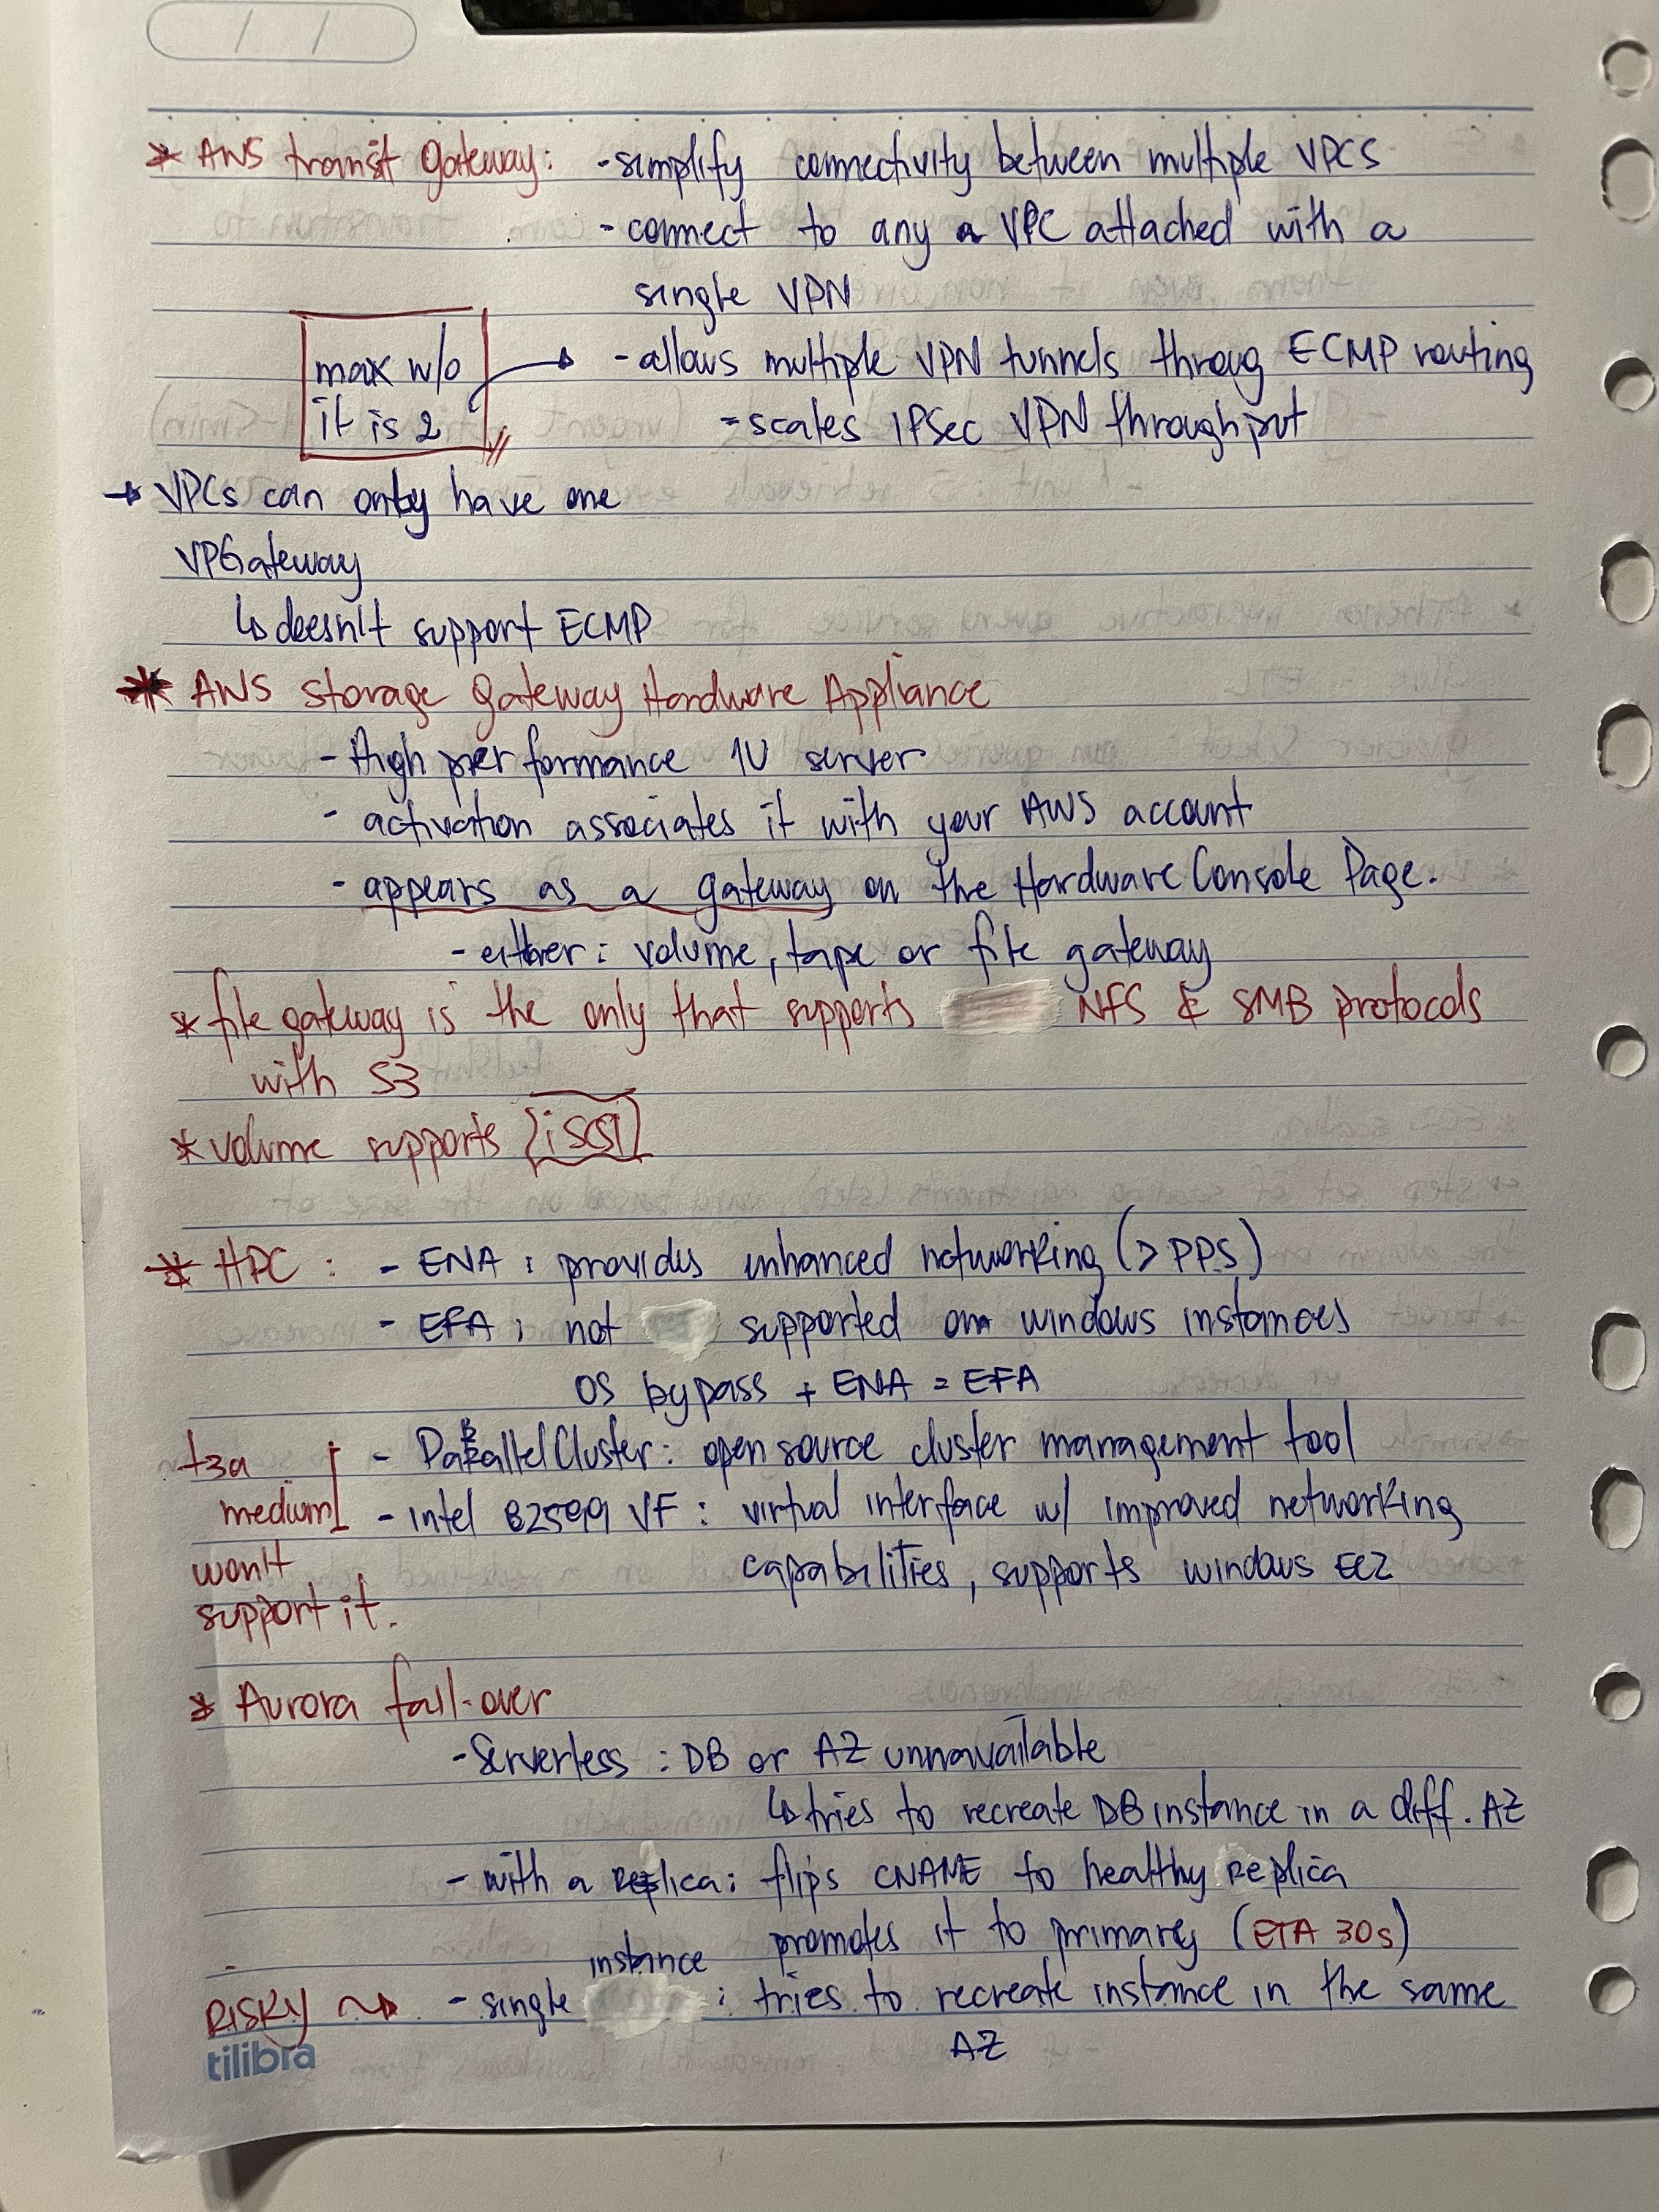 * AWS transit gateway: - simplify connectivity between multiple VPCS
- connect to any a VPC attached with a
single VPN
max w/o
it is 2
- allows multiple VPN tunnels throug ECMP routing
= scales IPSec VPN throughput
→ VPCs can only have one
VPGateway
↳ doesn't support ECMP
* AWS Storage Gateway Hardware Appliance
- High performance 1U server
- activation associates it with your AWS account
- appears as a gateway on the Hardware Console Page.
- either: volume, tape or file gateway
* file gateway is the only that supports NFS & SMB protocols
with S3
* volume supports iSCSi
* HPC: - ENA: provides enhanced networking (> PPS)
- EFA: not supported on windows instances
OS bypass + ENA = EFA
- ParallelCluster: open source cluster management tool
t3a
medium
won't
support it.
- Intel 82599 VF: virtual interface w/ improved networking
capabilities, supports windows EC2
* Aurora fail-over
- Serverless: DB or AZ unnavailable
↳ tries to recreate DB instance in a diff. AZ
- with a Replica: flips CNAME to healthy Replica
promotes it to primary (ETA 30s)
RISKY → - single instance: tries to recreate instance in the same
AZ
tilibra